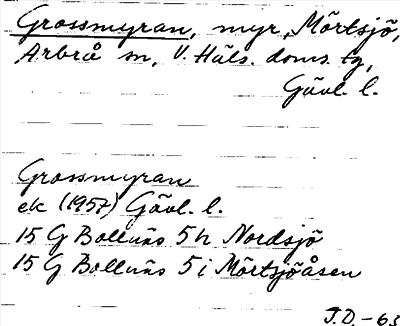 Grossmyran, myr, Mörtsjö,
Arbrå sn, V. Häls. doms. tg,
Gävl. l.
Grossmyran
ek (1957) Gävl. l.
15 G Bollnäs 5 h Nordsjö
15 G Bollnäs 5 i Mörtsjöåsen
J.D. -63